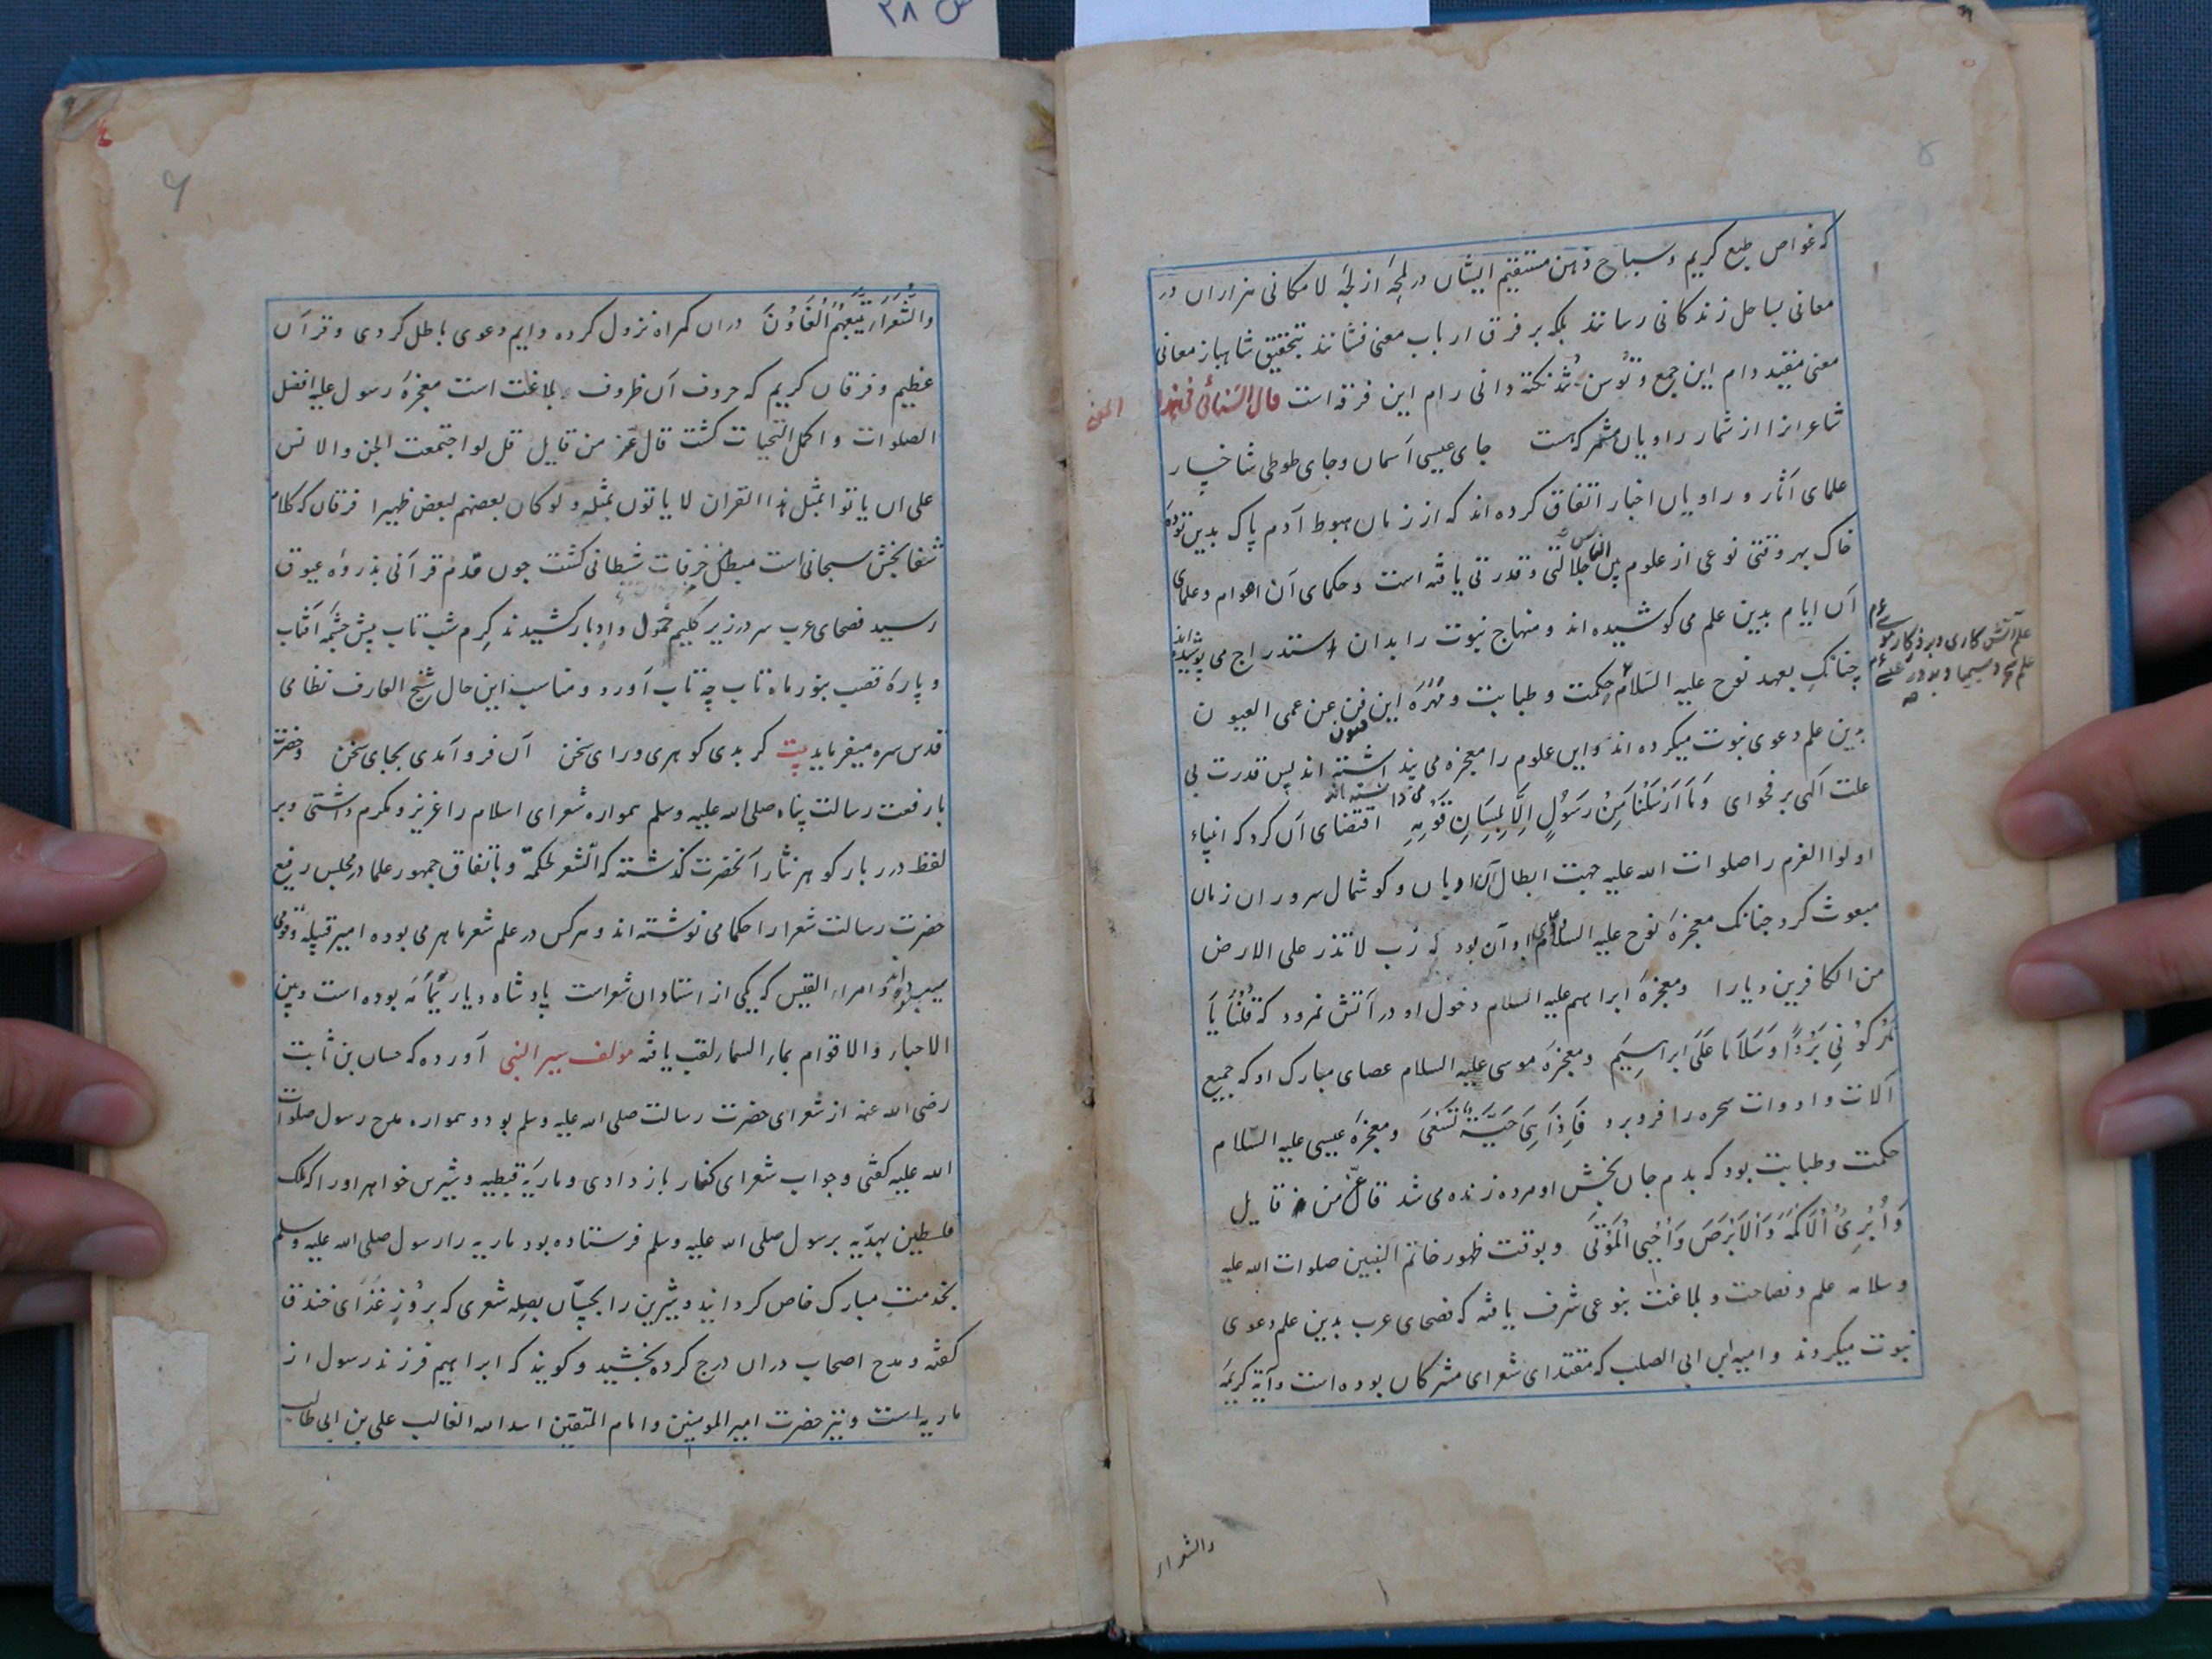 ص ۲۸
۵
که غواص طبع کریم و سباح ذهن مستقیم ایشان در لمحهٔ از لجهٔ لامکانی هزاران در
معانی بساحل زندکانی رسانند بلکه بر فرق ارباب معنی فشانند بتحقیق شاهباز معانی
معنی مقید دام این جمع و توسن تند نکته دانی رام این فرقه است قال السنائی فی هذا المعنی
شاعرانرا از شمار راویان مشمر که هست جای عیسی آسمان و جای طوطی شاخسار
علمای آثار و راویان اخبار اتفاق کرده اند که از زمان هبوط آدم پاک بدین توده
خاک بهر وقتی نوعی از علوم بین الناس جلالتی و قدرتی یافته است و حکمای آن اقوام و علمای
آن ایام بدین علم می کوشیده اند و منهاج نبوت را بدان استدراج می پوشیده اند
علم آتش کاری در روزکار موسی ع م
علم سحر و سیمیا و بدور عیسی ع م
چنانک بعهد نوح علیه السلام حکمت و طبابت و مهره این فن عن عمی العیون
بدین علم دعوی نبوت میکرده اند و این علوم را معجزه می پنداشته اند پس قدرت بی
می دانسته اند
علت الهی بر فحوای وَمَا اَرْسَلْنَا مِنْ رَسُولٍ اِلَّا بِلِسَانِ قَوْمِهِ اقتضای آن کرد که انبیاء
اولوا العزم را صلوات الله علیه جهت ابطال آن ادیان و کوشمال سروران زمان
مبعوث کرد چنانک معجزهٔ نوح علیه السلام او آن بود که رب لا تذر علی الارض
من الکافرین دیارا و معجزهٔ ابراهیم علیه السلام دخول او در آتش نمرود که قُلْنَا یَا
نَارُ کُونِی بَرْدًا وَسَلَامًا عَلَی اِبراهِیمَ و معجزهٔ موسی علیه السلام عصای مبارک او که جمیع
آلات و ادوات سحره را فرو برد فَاِذَا هِیَ حَیَّةٌ تَسْعَی و معجزهٔ عیسی علیه السلام
حکمت و طبابت بود که بدم جان بخش او مرده زنده می شد قال عز من قایل
وَاُبْرِئُ الْاَکْمَهَ وَالْاَبْرَصَ وَاُحْیِی الْمَوْتَی و بوقت ظهور خاتم النبیین صلوات الله علیه
و سلامه علم و فصاحت و بلاغت بنوعی شرف یافته که فصحای عرب بدین علم دعوی
نبوت میکردند و امیه ابن ابی الصلب که مقتدای شعرای مشرکان بوده است و آیة کریمهٔ
والشعراء
۶
والشُّعَرَاء یَتَّبِعُهُمُ الْغَاوُنَ دران کمراه نزول کرده و ایم دعوی باطل کردی و قرآن
عظیم و فرقان کریم که حروف آن ظروف بلاغت است معجزهٔ رسول علیه افضل
الصلوات و اکمل التحیات کشت قال عز من قایل قل لو اجتمعت الجن والانس
علی ان یاتوا بمثل هذا القران لا یاتون بمثله و لو کان بعضهم لبعض ظهیرا فرقان که کلام
شفا بخش سبحانی است مبطل خرفات شیطانی کشت چون قدم قرآنی بذروهٔ عیوق
رسید فصحای عرب سر در زیر کلیم خمول و ادبار کشیدند کرم شب تاب پیش چشمه آفتاب
و پارهٔ قصب بنور ماه تاب چه تاب آورد و مناسب این حال شیخ العارف نظامی
قدس سره میفرماید بیت کر بدی کوهری ورای سخن آن فرو آمدی بجای سخن و حضرت
با رفعت رسالت پناه صلی الله علیه وسلم همواره شعرای اسلام را عزیز و مکرم داشتی و بر
لفظ درربار کوهر نثار آنحضرت کذشته که الشعر لحکمة و باتفاق جمهور علما در مجلس رفیع
حضرت رسالت شعرا را حکما می نوشته اند و هر کس در علم شعر ماهر می بوده امیر قبیله و قومی
میبوده اند و امراء القیس که یکی از استادان شعر است پادشاه دیار یمامه بوده است و بین
الاحبار والاقوام بماء السماء لقب یافته مولف سیر النبی آورده که حسان بن ثابت
رضی الله عنه از شعرای حضرت رسالت صلی الله علیه وسلم بود و همواره مدح رسول صلوات
الله علیه کفتی و جواب شعرای کفار باز دادی و ماریهٔ قبطیه و شیرین خواهر او را که ملک
فلسطین بهدیه برسول صلی الله علیه وسلم فرستاده بود ماریه را رسول صلی الله علیه وسلم
بخدمت مبارک خاص کردانید و شیرین را بحسان بصله شعری که بروز غذای خندق
کفته و مدح اصحاب دران درج کرده بخشید و کویند که ابراهیم فرزند رسول از
ماریه است و نیز حضرت امیر المومنین و امام المتقین اسد الله الغالب علی بن ابی طالب